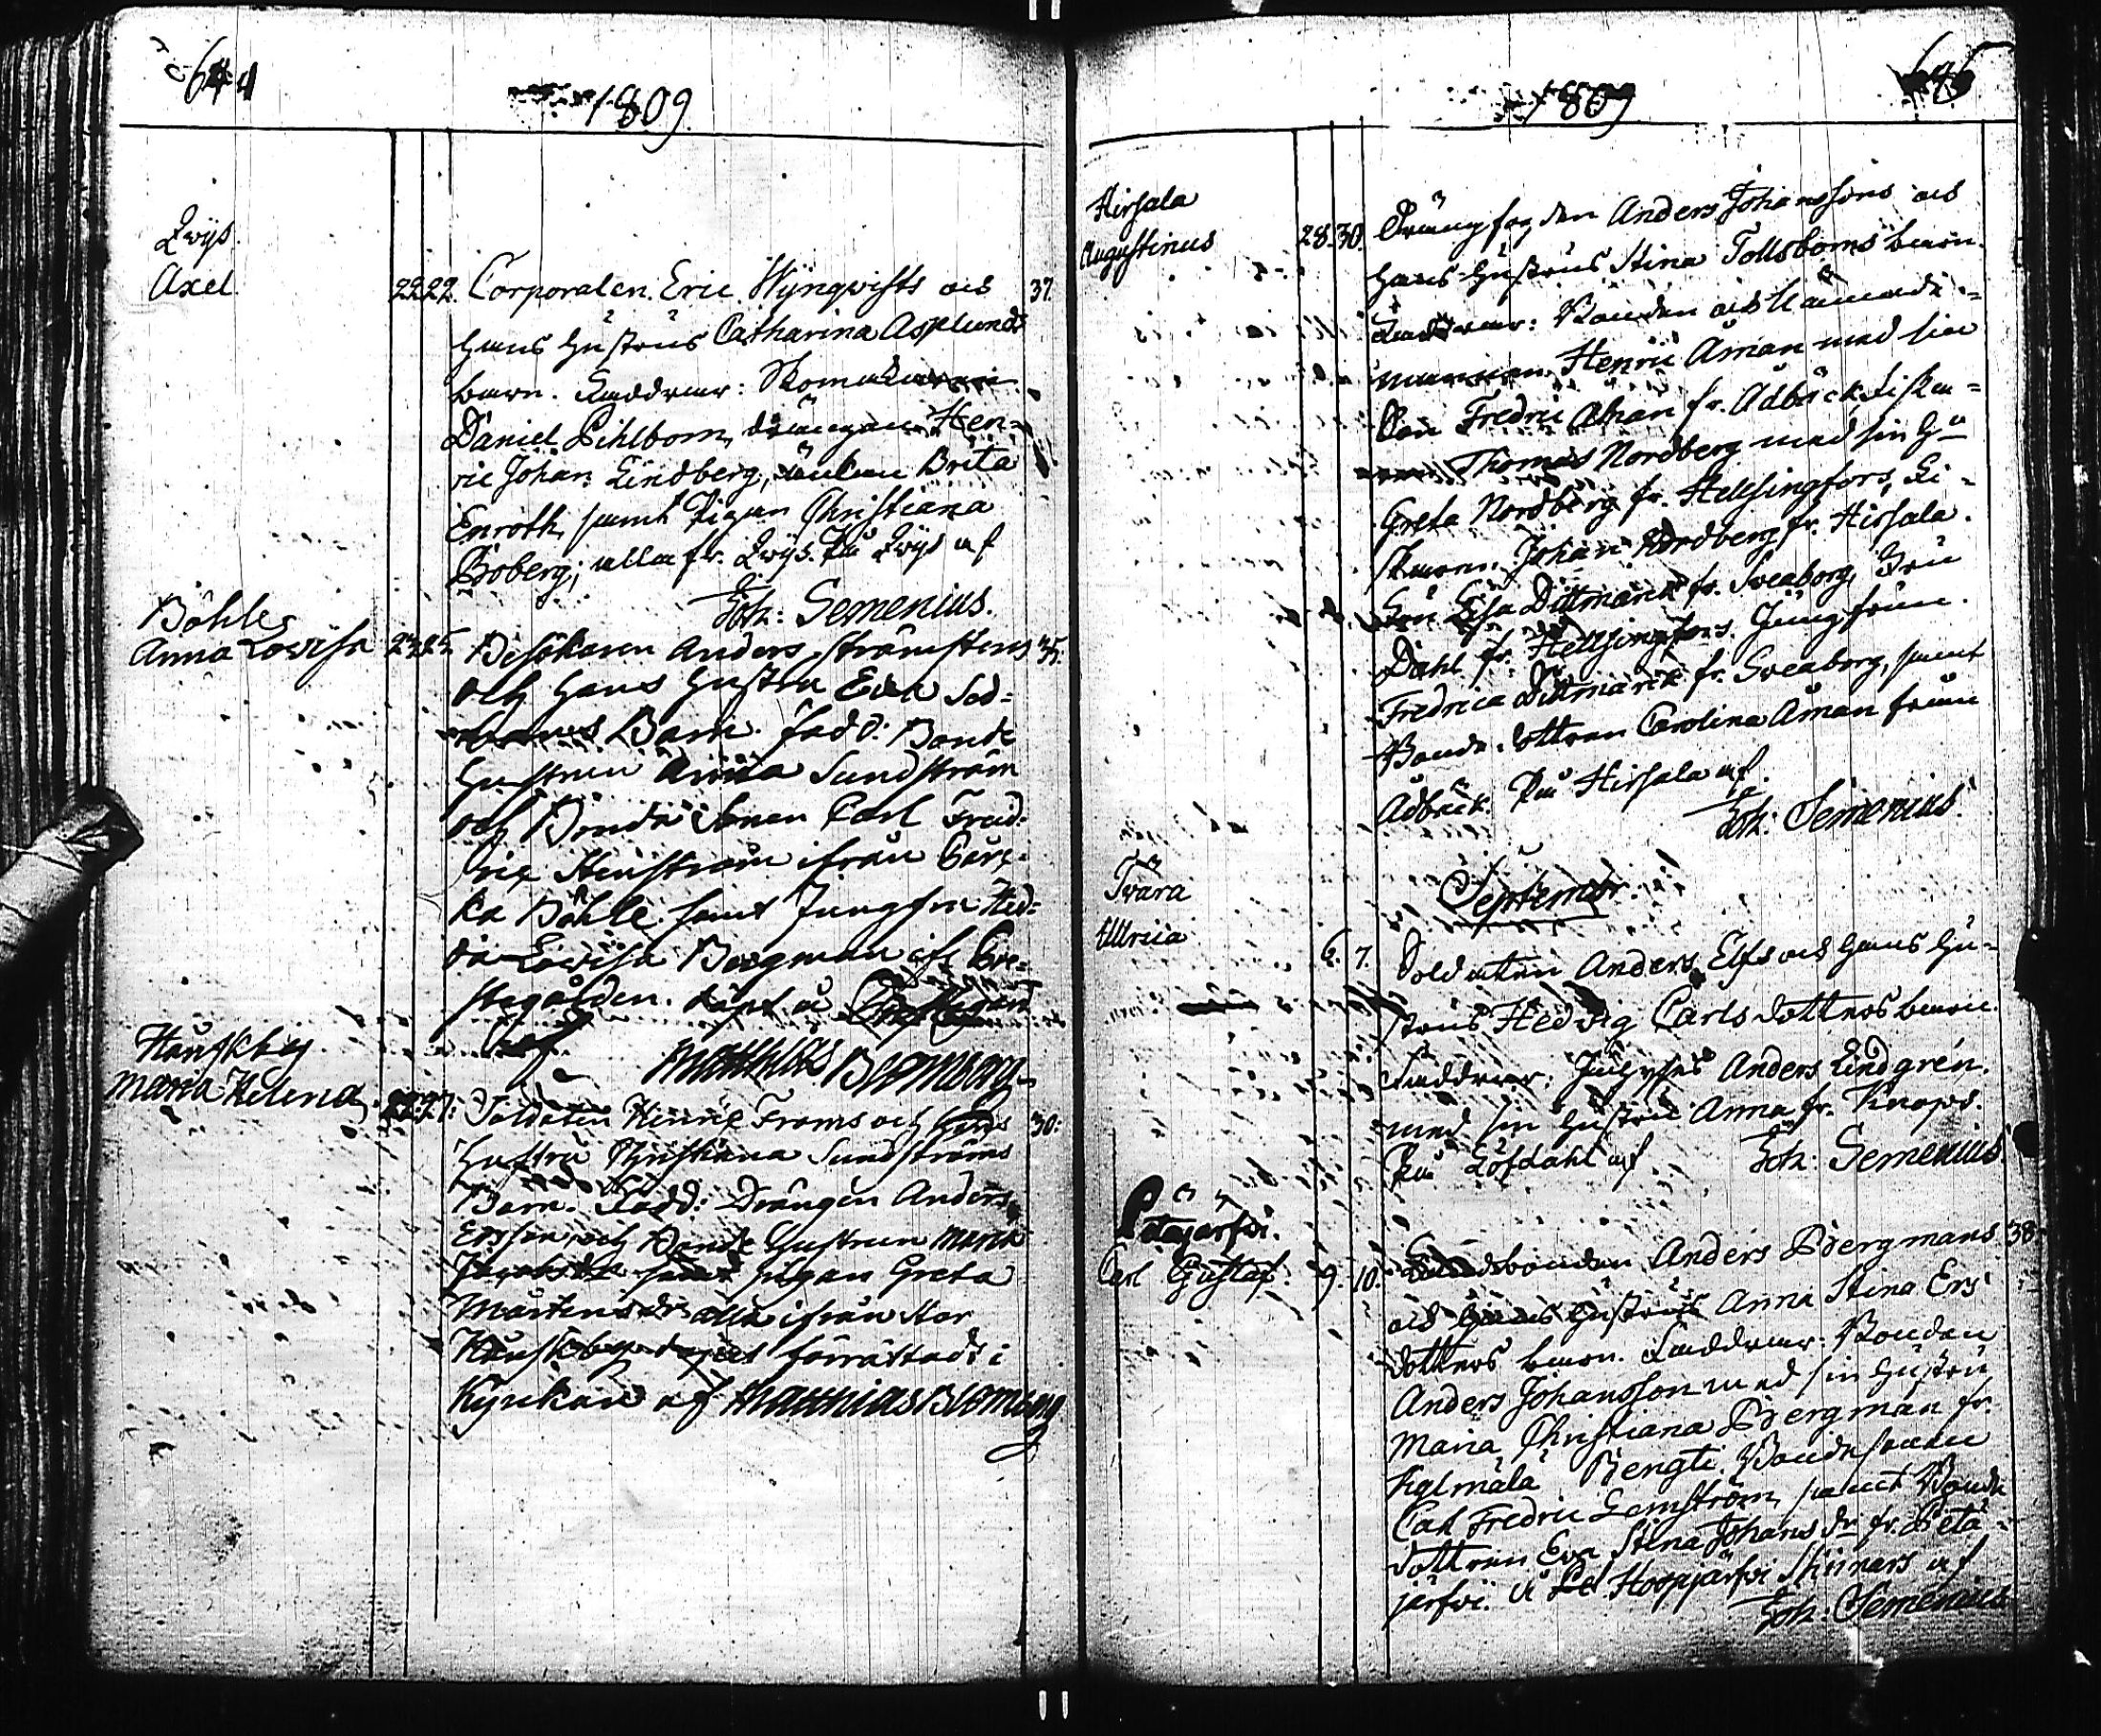 644
1809
Qvijs
Axel 22 22. Corporalen Eric Wijnqvists och 37.
hans Hustrus Catharina Asplunds
barn. Faddrar: Skomakaren
Daniel Pihlbom, drängen Hen-
ric Johan Lindberg, änkan Brita
Enroth, samt Pigan Christiana
Boberg; alla fr. Qvijs. På Qvijs af
Joh: Semenius.
Böhle
Anna Lovisa 23 25. Besökaren Anders Strömstens 35.
och hans hustru Eva Sed-
Barn. fadd: Bonde
hustrun Anna Sundström
och Bonde Sonen Carl Fred-
ric Stenström ifrån
ka Böhle samt Jungfru Hed-
da Lovisa Bergman ifr. Pre-
stegården. döpt å
af Matthias Blomberg
Hauskby
Maria Helena 22. 27: Soldaten Henric Froms och hans 30:
hustru Christiana Sundströms
Barn. Fadd: Drängen Anders
Ersson, och Bonde hustrun Maria
Jacobsdr samt pigan Greta
Mårtensdr alla ifrån Stor
Hauskby dopet förrättads i
Kyrkan af Matthias Blomberg
645
1809
Hirsala
Augustinus 28. 30. Drängfogden Anders Johanssons och
hans Hustrus Stina Tollsboms barn.
Faddrar: Bonden och Nämnde-
mannen Henric Åman med sin
Son Fredric Åman fr. Adbäck, Fiska-
ren Thomas Nordberg med sin Hu
Greta Nordberg fr. Helsingfors, Fi-
skaren Johan Nordberg fr. Hirsala.
Fru Lisa Dittmarck fr. Sveaborg, Fru
Dahl fr. Helsingfors. Jungfrun
Fredrica Dittmarck fr. Sveaborg, samt
Bonde dottren Carolina Åman från
Adbäck. På Hirsala af.
Joh: Semenius.
September.
Tvära
Ullrica 6. 7. Soldaten Anders Elfs och hans Hu-
strus Hedvig Carlsdotters barn.
Faddrar: Anders Lindgrén
med sin Hustru Anna fr. Knaps.
På Löfdahl af Joh: Semenius.
Petäjärfvi.
Carl Gustaf. 9. 10. Anders Bergmans 38
och hans Hustrus Anna Stina Ers
dotters barn. Faddrar: Bonden
Anders Johansson med sin Hustru
Maria Christiana Bergman fr.
Kylmälä Bengti. Bondesonen
Carl Fredric Lemström, samt Bonde
dottren Eva Stina Johansdr fr. Petä-
järfvi. å Hoopjärfvi Skinnars af
Joh: Semenius